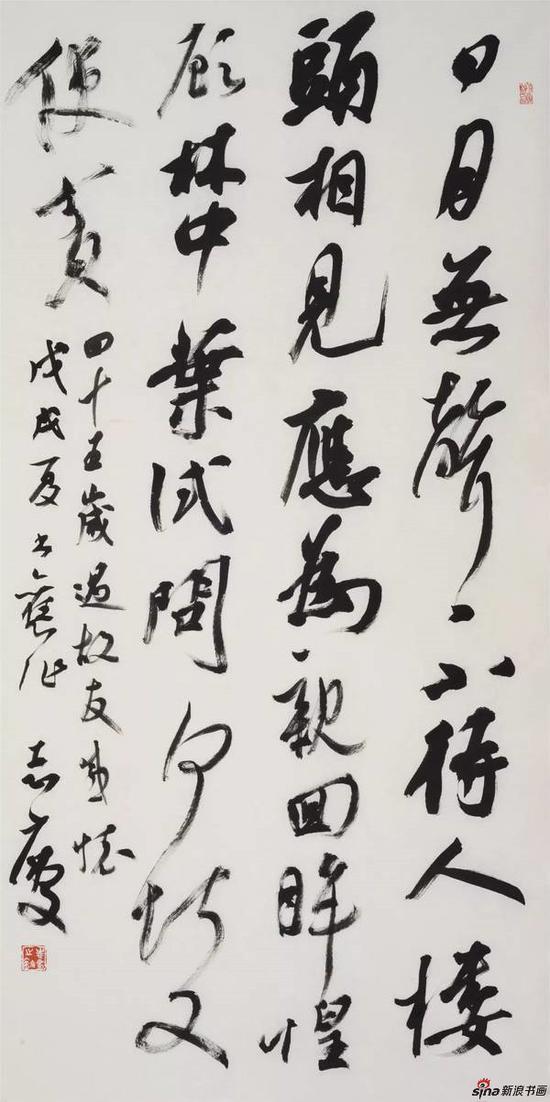 日月無聲不待人樓
頭相見應為親回眸惶
顧林中葉試問何時又
四十五歲過故友感懷
戊戌夏書舊作 志慶
sina新浪书画